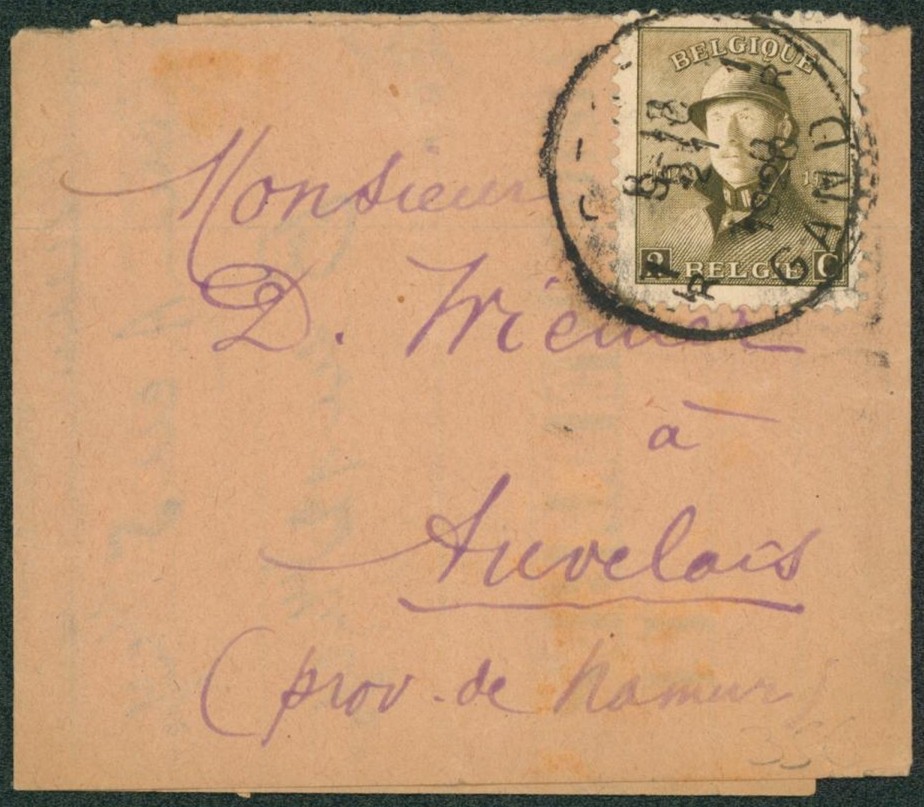 BELGIQUE
2 BELGIË C
GAND
Monsieur
D. Wiemer
à
Auvelais
(prov. de Namur)